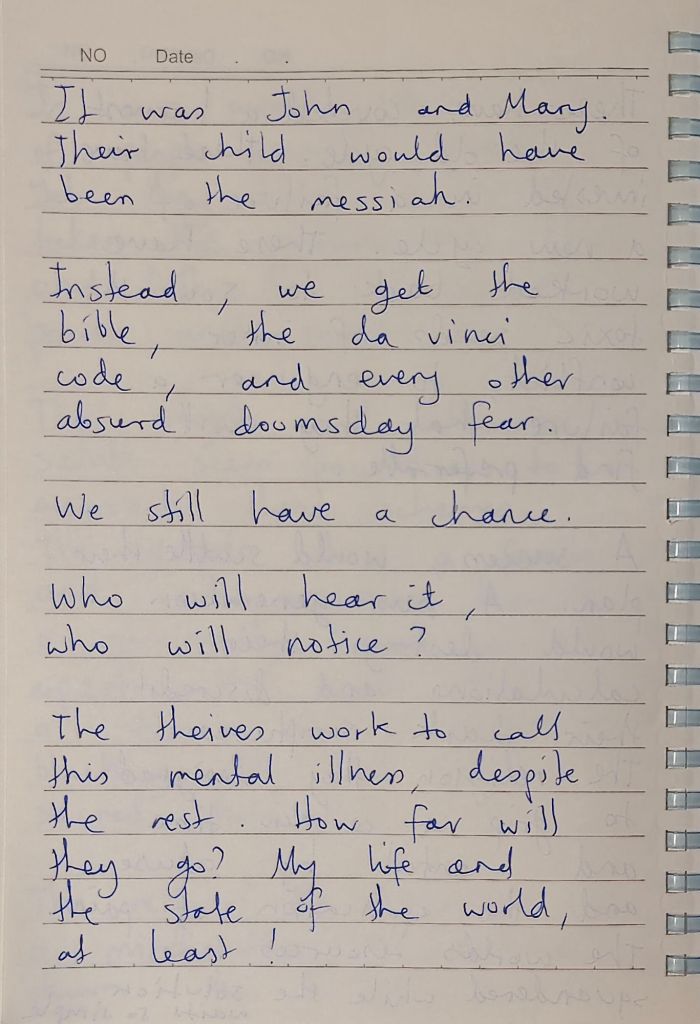 NO Date . .
It was John and Mary.
Their child would have
been the messiah.
Instead, we get the
bible, the da vinci
code, and every other
absurd doomsday fear.
We still have a chance.
Who will hear it,
who will notice?
The theives work to call
this mental illness, despite
the rest. How far will
they go? My life and
the state of the world,
at least!